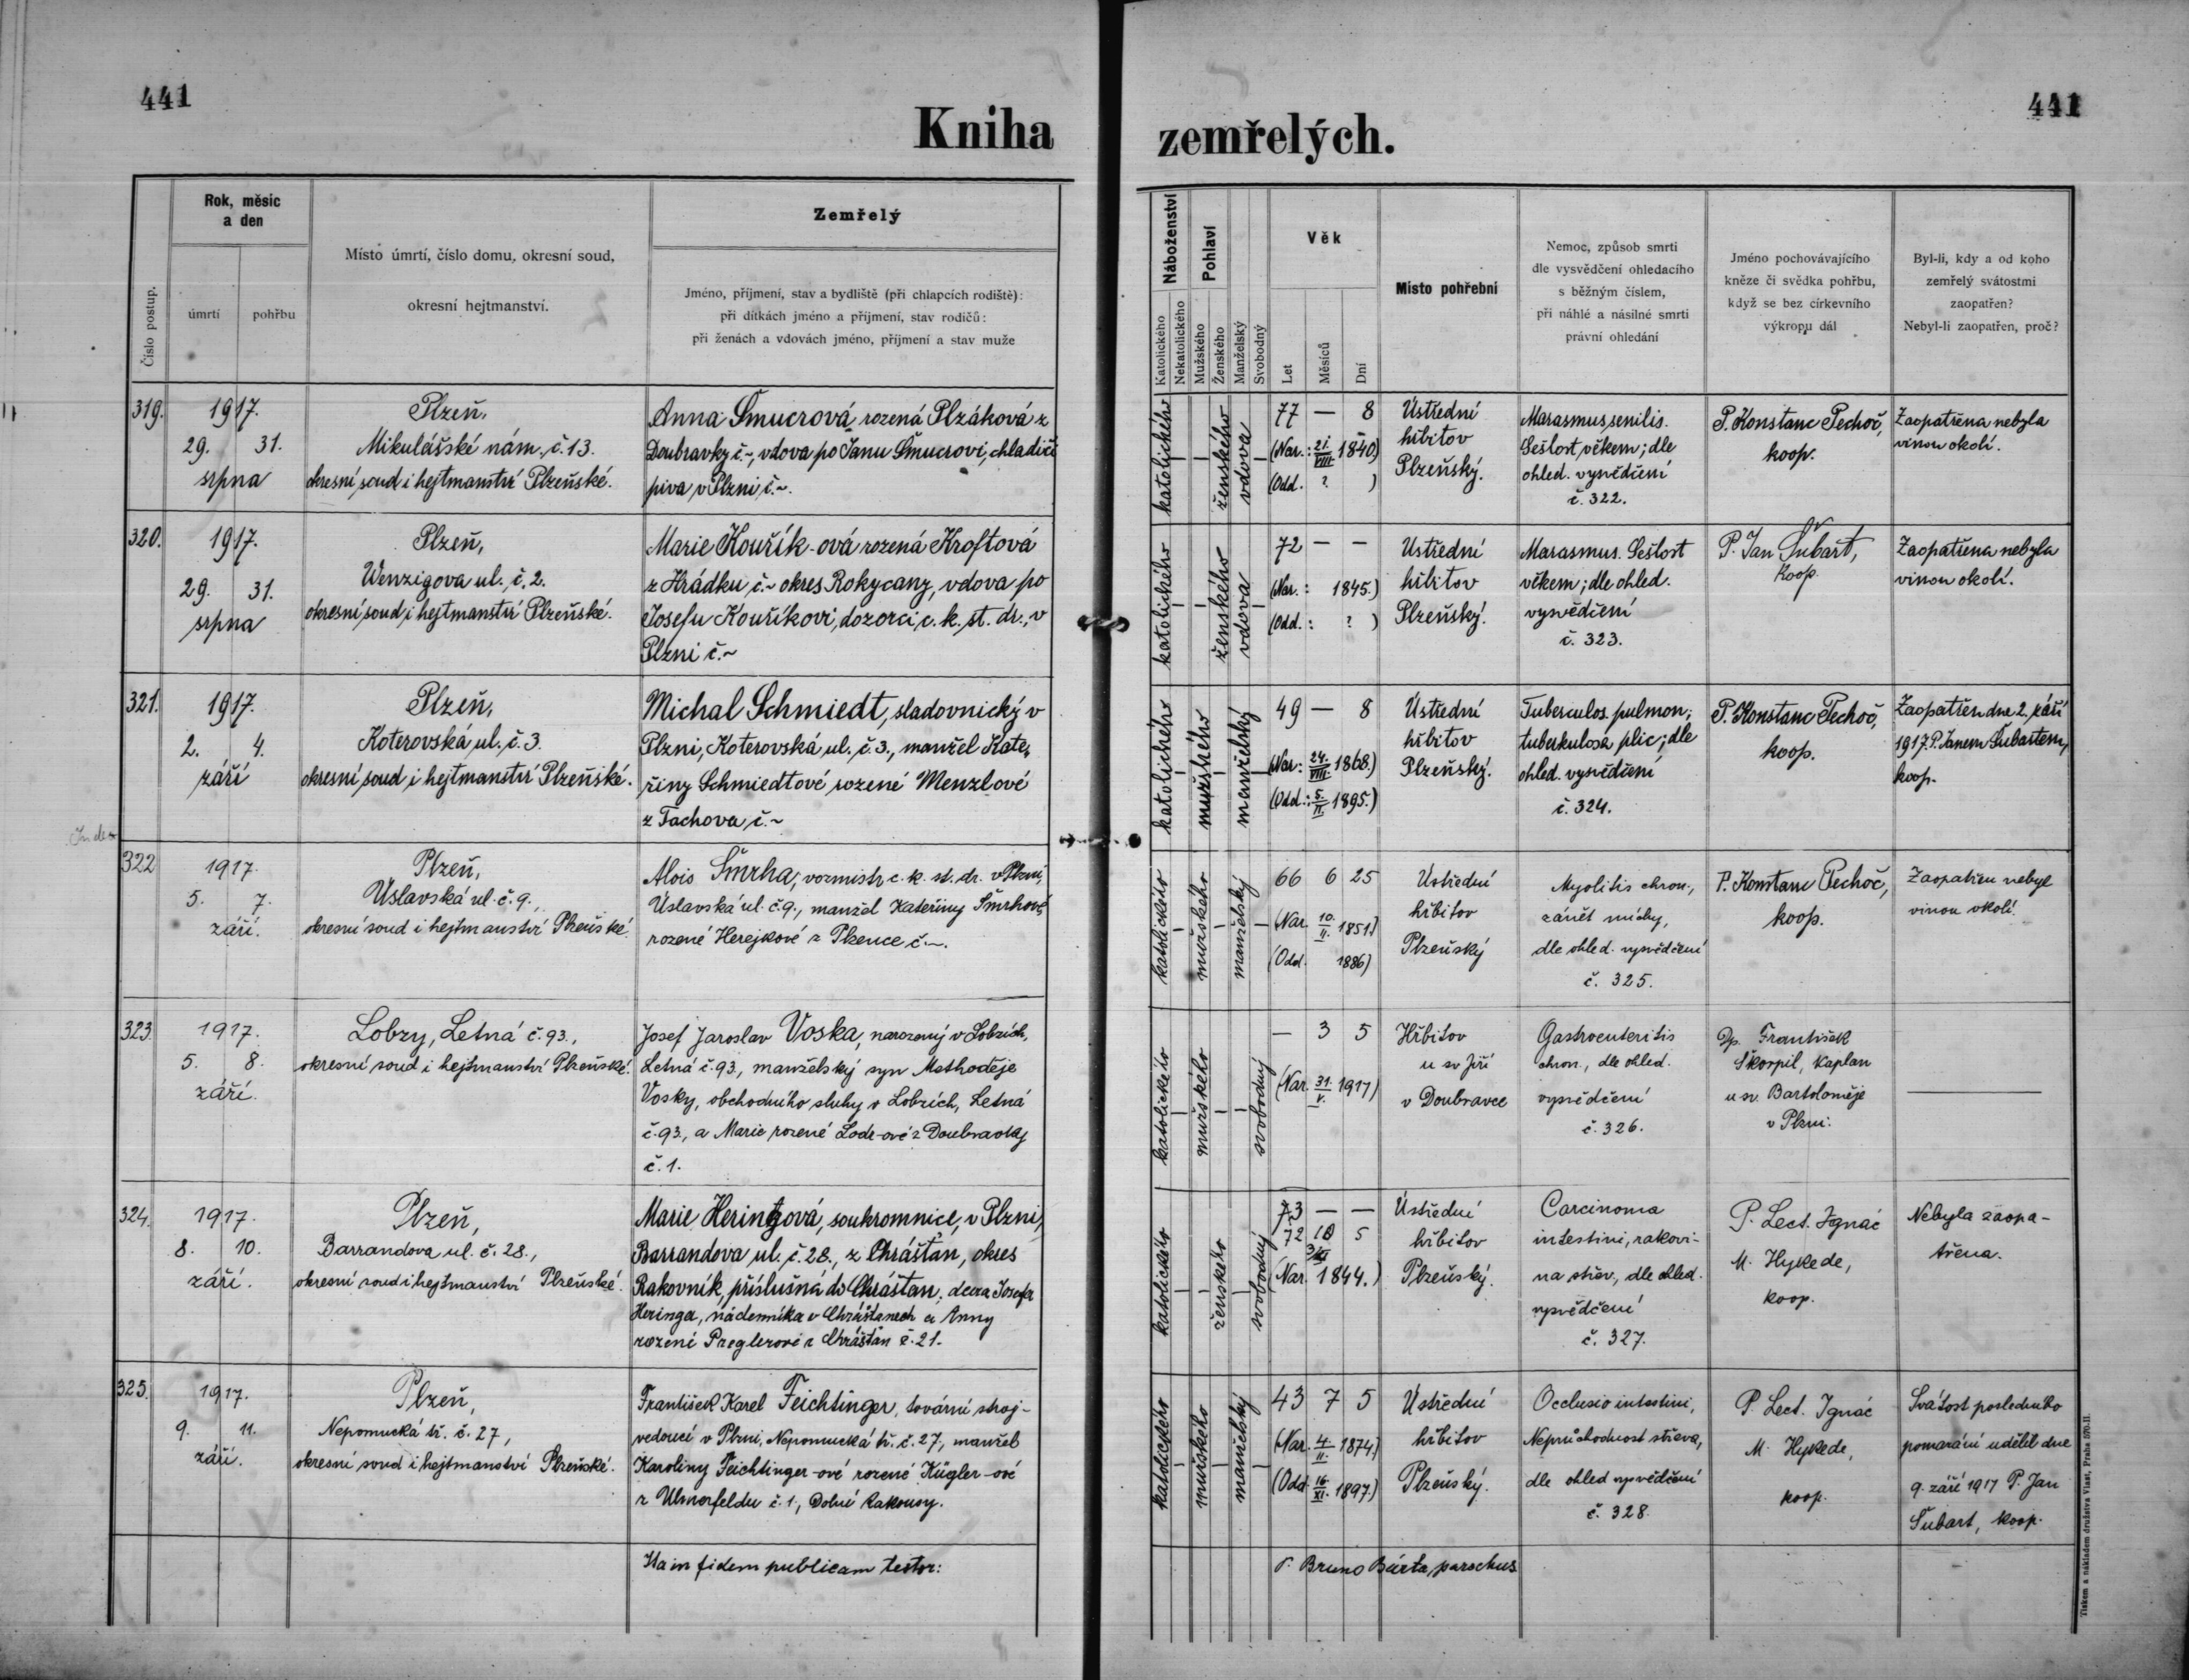 441
441
Kniha zemřelých.
Číslo postup.
Rok, měsíc
a den
úmrtí
pohřbu
Místo úmrtí, číslo domu, okresní soud,
okresní hejtmanství.
Zemřelý
Jméno, příjmení, stav a bydliště (při chlapcích rodiště):
při dítkách jméno a příjmení, stav rodičů:
při ženách a vdovách jméno, příjmení a stav muže
Náboženství
Katolického
Nekatolického
Pohlaví
Mužského
Ženského
Manželský
Svobodný
Věk
Let
Měsíců
Dní
Místo pohřební
Nemoc, způsob smrti
dle vysvědčení ohledacího
s běžným číslem,
při náhlé a násilné smrti
právní ohledání
Jméno pochovávajícího
kněze či svědka pohřbu,
když se bez církevního
výkropu dál
Byl-li, kdy a od koho
zemřelý svátostmi
zaopatřen?
Nebyl-li zaopatřen, proč?
319.
1917.
29. 31.
srpna
Plzeň,
Mikulášské nám. č. 13.
okresní soud i hejtmanství Plzeňské.
Anna Šmucrová rozená Plzáková z
Doubravky č.~, vdova po Janu Šmucrovi, chladiči
piva v Plzni č.~.
katolického
ženského
vdova
77 — 8
(Nar.: 21./VIII. 1840)
(Odd. ? )
Ústřední
hřbitov
Plzeňský.
Marasmus senilis.
Sešlost věkem; dle
ohled. vysvědčení
č. 322.
P. Konstanc Pechoč,
koop.
Zaopatřena nebyla
vinou okolí.
320.
1917.
29. 31.
srpna
Plzeň,
Wenzigova ul., č. 2.
okresní soud i hejtmanství Plzeňské.
Marie Kouřík-ová rozená Kroftová
z Hrádku č.~ okres Rokycany, vdova po
Josefu Kouříkovi, dozorci c. k. st. dr., v
Plzni č.~
katolického
ženského
vdova
72 — —
(Nar.: 1845.)
(Odd.: ? )
Ústřední
hřbitov
Plzeňský.
Marasmus. Sešlost
věkem; dle ohled.
vysvědčení
č. 323.
P. Jan Šubart,
koop.
Zaopatřena nebyla
vinou okolí.
321.
1917.
2. 4.
září
Plzeň,
Koterovská ul., č. 3.
okresní soud i hejtmanství Plzeňské.
Michal Schmiedt, sladovnický v
Plzni, Koterovská ul. č. 3., manžel Kate-
řiny Schmiedtové rozené Menzlové
z Tachova, č.~
katolického
mužského
manželský
49 — 8
(Nar.: 24./VIII. 1868.)
(Odd.: 5./II. 1895.)
Ústřední
hřbitov
Plzeňský.
Tuberculos. pulmon.;
tuberkulosa plic; dle
ohled. vysvědčení
č. 324.
P. Konstanc Pechoč,
koop.
Zaopatřen dne 2. září
1917 P. Janem Šubartem,
koop.
Index
322
1917.
5. 7.
září.
Plzeň,
Úslavská ul. č. 9.,
okresní soud i hejtmanství Plzeňské.
Alois Šmrha, vozmistr c. k. st. dr. v Plzni,
Úslavská ul. č. 9., manžel Kateřiny Šmrhové
rozené Herejkové z Plzence č.~.
katolického
mužského
manželský
66 6 25
(Nar. 10./II. 1851.)
(Odd. 1886)
Ústřední
hřbitov
Plzeňský
Myolitis chron.,
zánět míchy,
dle ohled. vysvědčení
č. 325.
P. Konstanc Pechoč,
koop.
Zaopatřen nebyl
vinou okolí.
323.
1917.
5. 8.
září.
Lobzy, Letná č. 93.,
okresní soud i hejtmanství Plzeňské.
Josef Jaroslav Voska, narozený v Lobzích,
Letná č. 93., manželský syn Methoděje
Vosky, obchodního sluhy v Lobzích, Letná
č. 93., a Marie rozené Lode-ové z Doubravky
č. 1.
katolického
mužského
svobodný
— 3 5
(Nar. 31./V. 1917)
Hřbitov
u sv Jiří
v Doubravce
Gastroenteritis
chron., dle ohled.
vysvědčení
č. 326.
Dp. František
Škorpil, kaplan
u sv. Bartoloměje
v Plzni.
324.
1917.
8. 10.
září.
Plzeň,
Barrandova ul. č. 28.,
okresní soud i hejtmanství Plzeňské.
Marie Heringová, soukromnice, v Plzni,
Barrandova ul. č. 28., z Chrášťan, okres
Rakovník, příslušná do Chrášťan, dcera Josefa
Heringa, nádenníka v Chrášťanech a Anny
rozené Preglerové z Chrášťan č. 21.
katolického
ženského
svobodný
73 — —
72 10 5
3/XI
(Nar. 1844.)
Ústřední
hřbitov
Plzeňský.
Carcinoma
intestini, rakovi-
na střev, dle ohled.
vysvědčení
č. 327.
P. Lect. Ignác
M. Hykede,
koop.
Nebyla zaopa-
třena.
325.
1917.
9. 11.
září.
Plzeň,
Nepomucká tř. č. 27,
okresní soud i hejtmanství Plzeňské.
František Karel Feichtinger, tovární stroj-
vedoucí v Plzni, Nepomucká tř. č. 27, manžel
Karoliny Feichtinger-ové rozené Kügler-ové
z Ulmerfeldu č. 1., Dolní Rakousy.
katolického
mužského
manželský
43 7 5
(Nar. 4./II. 1874.)
(Odd. 16/XI. 1897.)
Ústřední
hřbitov
Plzeňský.
Occlusio intestini,
Neprůchodnost střeva,
dle ohled vysvědčení
č. 328.
P. Lect. Ignác
M. Hykede,
koop.
Svátost posledního
pomazání udělil dne
9. září 1917 P. Jan
Šubart, koop.
Ita in fidem publicam testor:
P. Bruno Bárta, parochus
Tiskem a nákladem družstva Vlast, Praha 570-II.